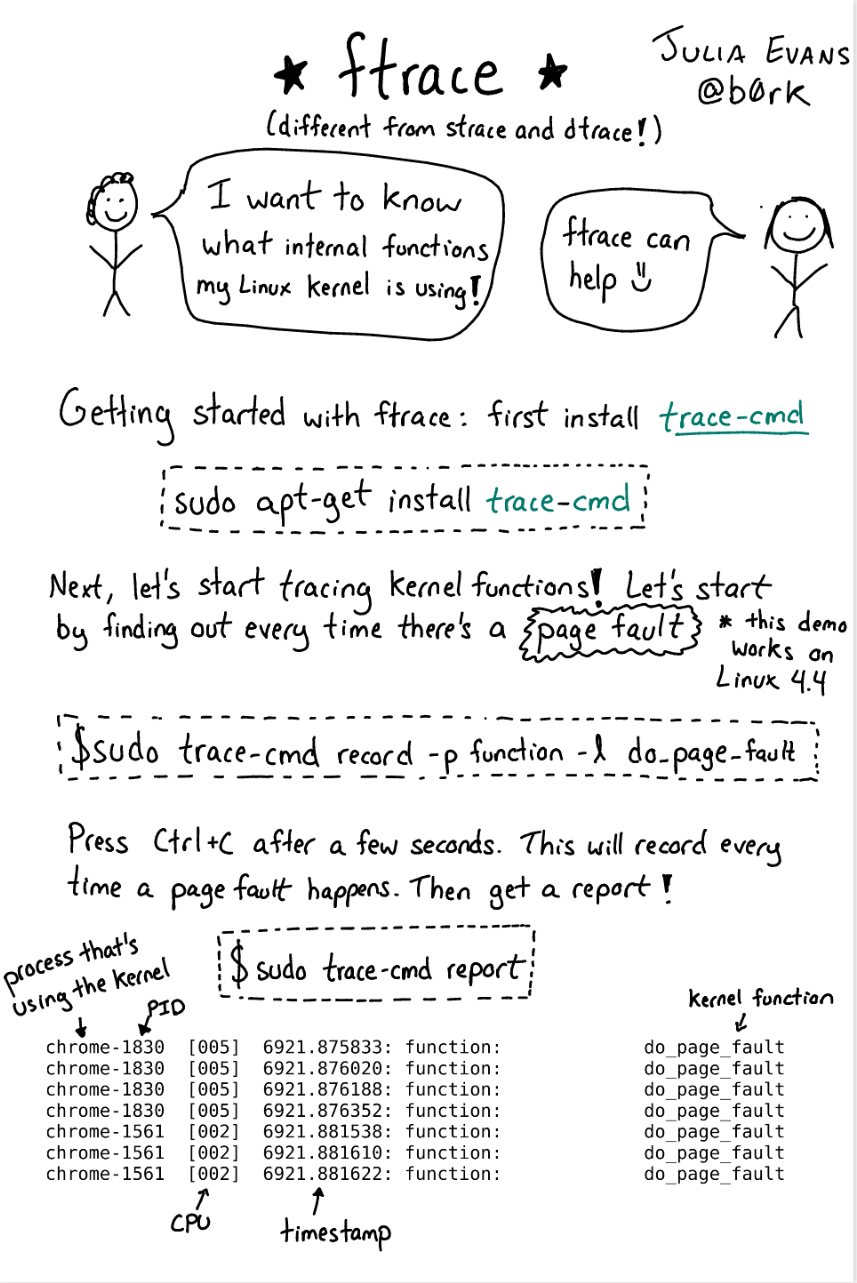 ★ ftrace ★
JULIA EVANS
@b0rk
(different from strace and dtrace!)
I want to know
what internal functions
my Linux kernel is using!
ftrace can
help
Getting started with ftrace: first install trace-cmd
sudo apt-get install trace-cmd
Next, let's start tracing kernel functions! Let's start
by finding out every time there's a page fault
* this demo
works on
Linux 4.4
$ sudo trace-cmd record -p function -l do_page_fault
Press Ctrl+C after a few seconds. This will record every
time a page fault happens. Then get a report!
$ sudo trace-cmd report
process that's
using the kernel
PID
kernel function
chrome-1830 [005] 6921.875833: function: do_page_fault
chrome-1830 [005] 6921.876020: function: do_page_fault
chrome-1830 [005] 6921.876188: function: do_page_fault
chrome-1830 [005] 6921.876352: function: do_page_fault
chrome-1561 [002] 6921.881538: function: do_page_fault
chrome-1561 [002] 6921.881610: function: do_page_fault
chrome-1561 [002] 6921.881622: function: do_page_fault
CPU
timestamp